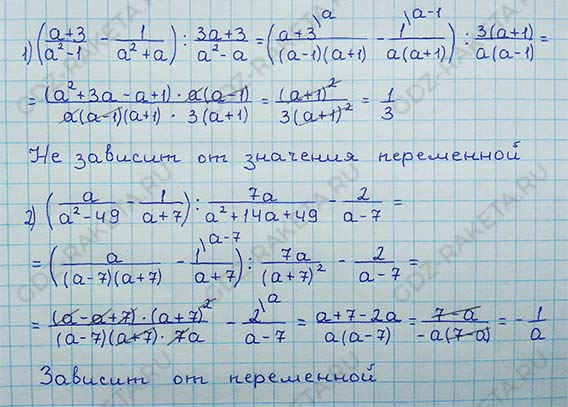 1) ((a+3)/(a²-1) - 1/(a²+a)) : (3a+3)/(a²-a) = ((a+3^{\a})/((a-1)(a+1)) - 1^{\a-1}/(a(a+1))) : 3(a+1)/(a(a-1)) =
= ((a²+3a-a+1) · a(a-1))/(a(a-1)(a+1) · 3(a+1)) = (a+1)²/(3(a+1)²) = 1/3
Не зависит от значения переменной
2) (a/(a²-49) - 1/(a+7)) : 7a/(a²+14a+49) - 2/(a-7) =
= (a/((a-7)(a+7)) - 1^{\a-7}/(a+7)) : 7a/(a+7)² - 2/(a-7) =
= ((a-a+7) · (a+7)²)/((a-7)(a+7) · 7a) - 2^{\a}/(a-7) = (a+7-2a)/(a(a-7)) = (7-a)/(-a(7-a)) = -1/a
Зависит от переменной
GDZ-RAKETA.RU